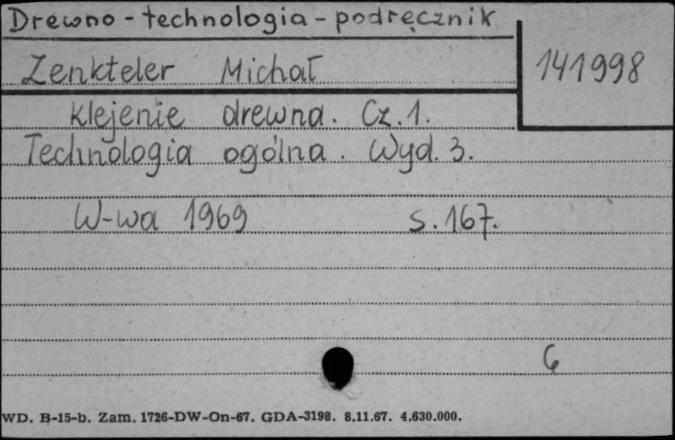 Drewno - technologia - podręcznik
Zenkteler Michał
141998
Klejenie drewna. Cz. 1.
Technologia ogólna. Wyd. 3.
W-wa 1969 s. 167.
6
WD. B-15-b. Zam. 1726-DW-On-67. GDA-3198. 8.11.67. 4.630.000.